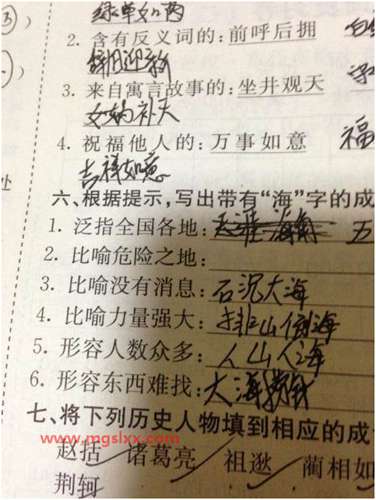 ③
绿草如茵
2. 含有反义词的: 前呼后拥
辞旧迎新
3. 来自寓言故事的: 坐井观天
女娲补天
4. 祝福他人的: 万事如意 福
吉祥如意
处
六、根据提示,写出带有“海”字的成
1. 泛指全国各地: 天涯海角 五
2. 比喻危险之地:
3. 比喻没有消息: 石沉大海
4. 比喻力量强大: 排山倒海
5. 形容人数众多: 人山人海
6. 形容东西难找: 大海捞针
七、将下列历史人物填到相应的成
www.mgslxx.com
赵括 诸葛亮 祖逖 蔺相如
荆轲